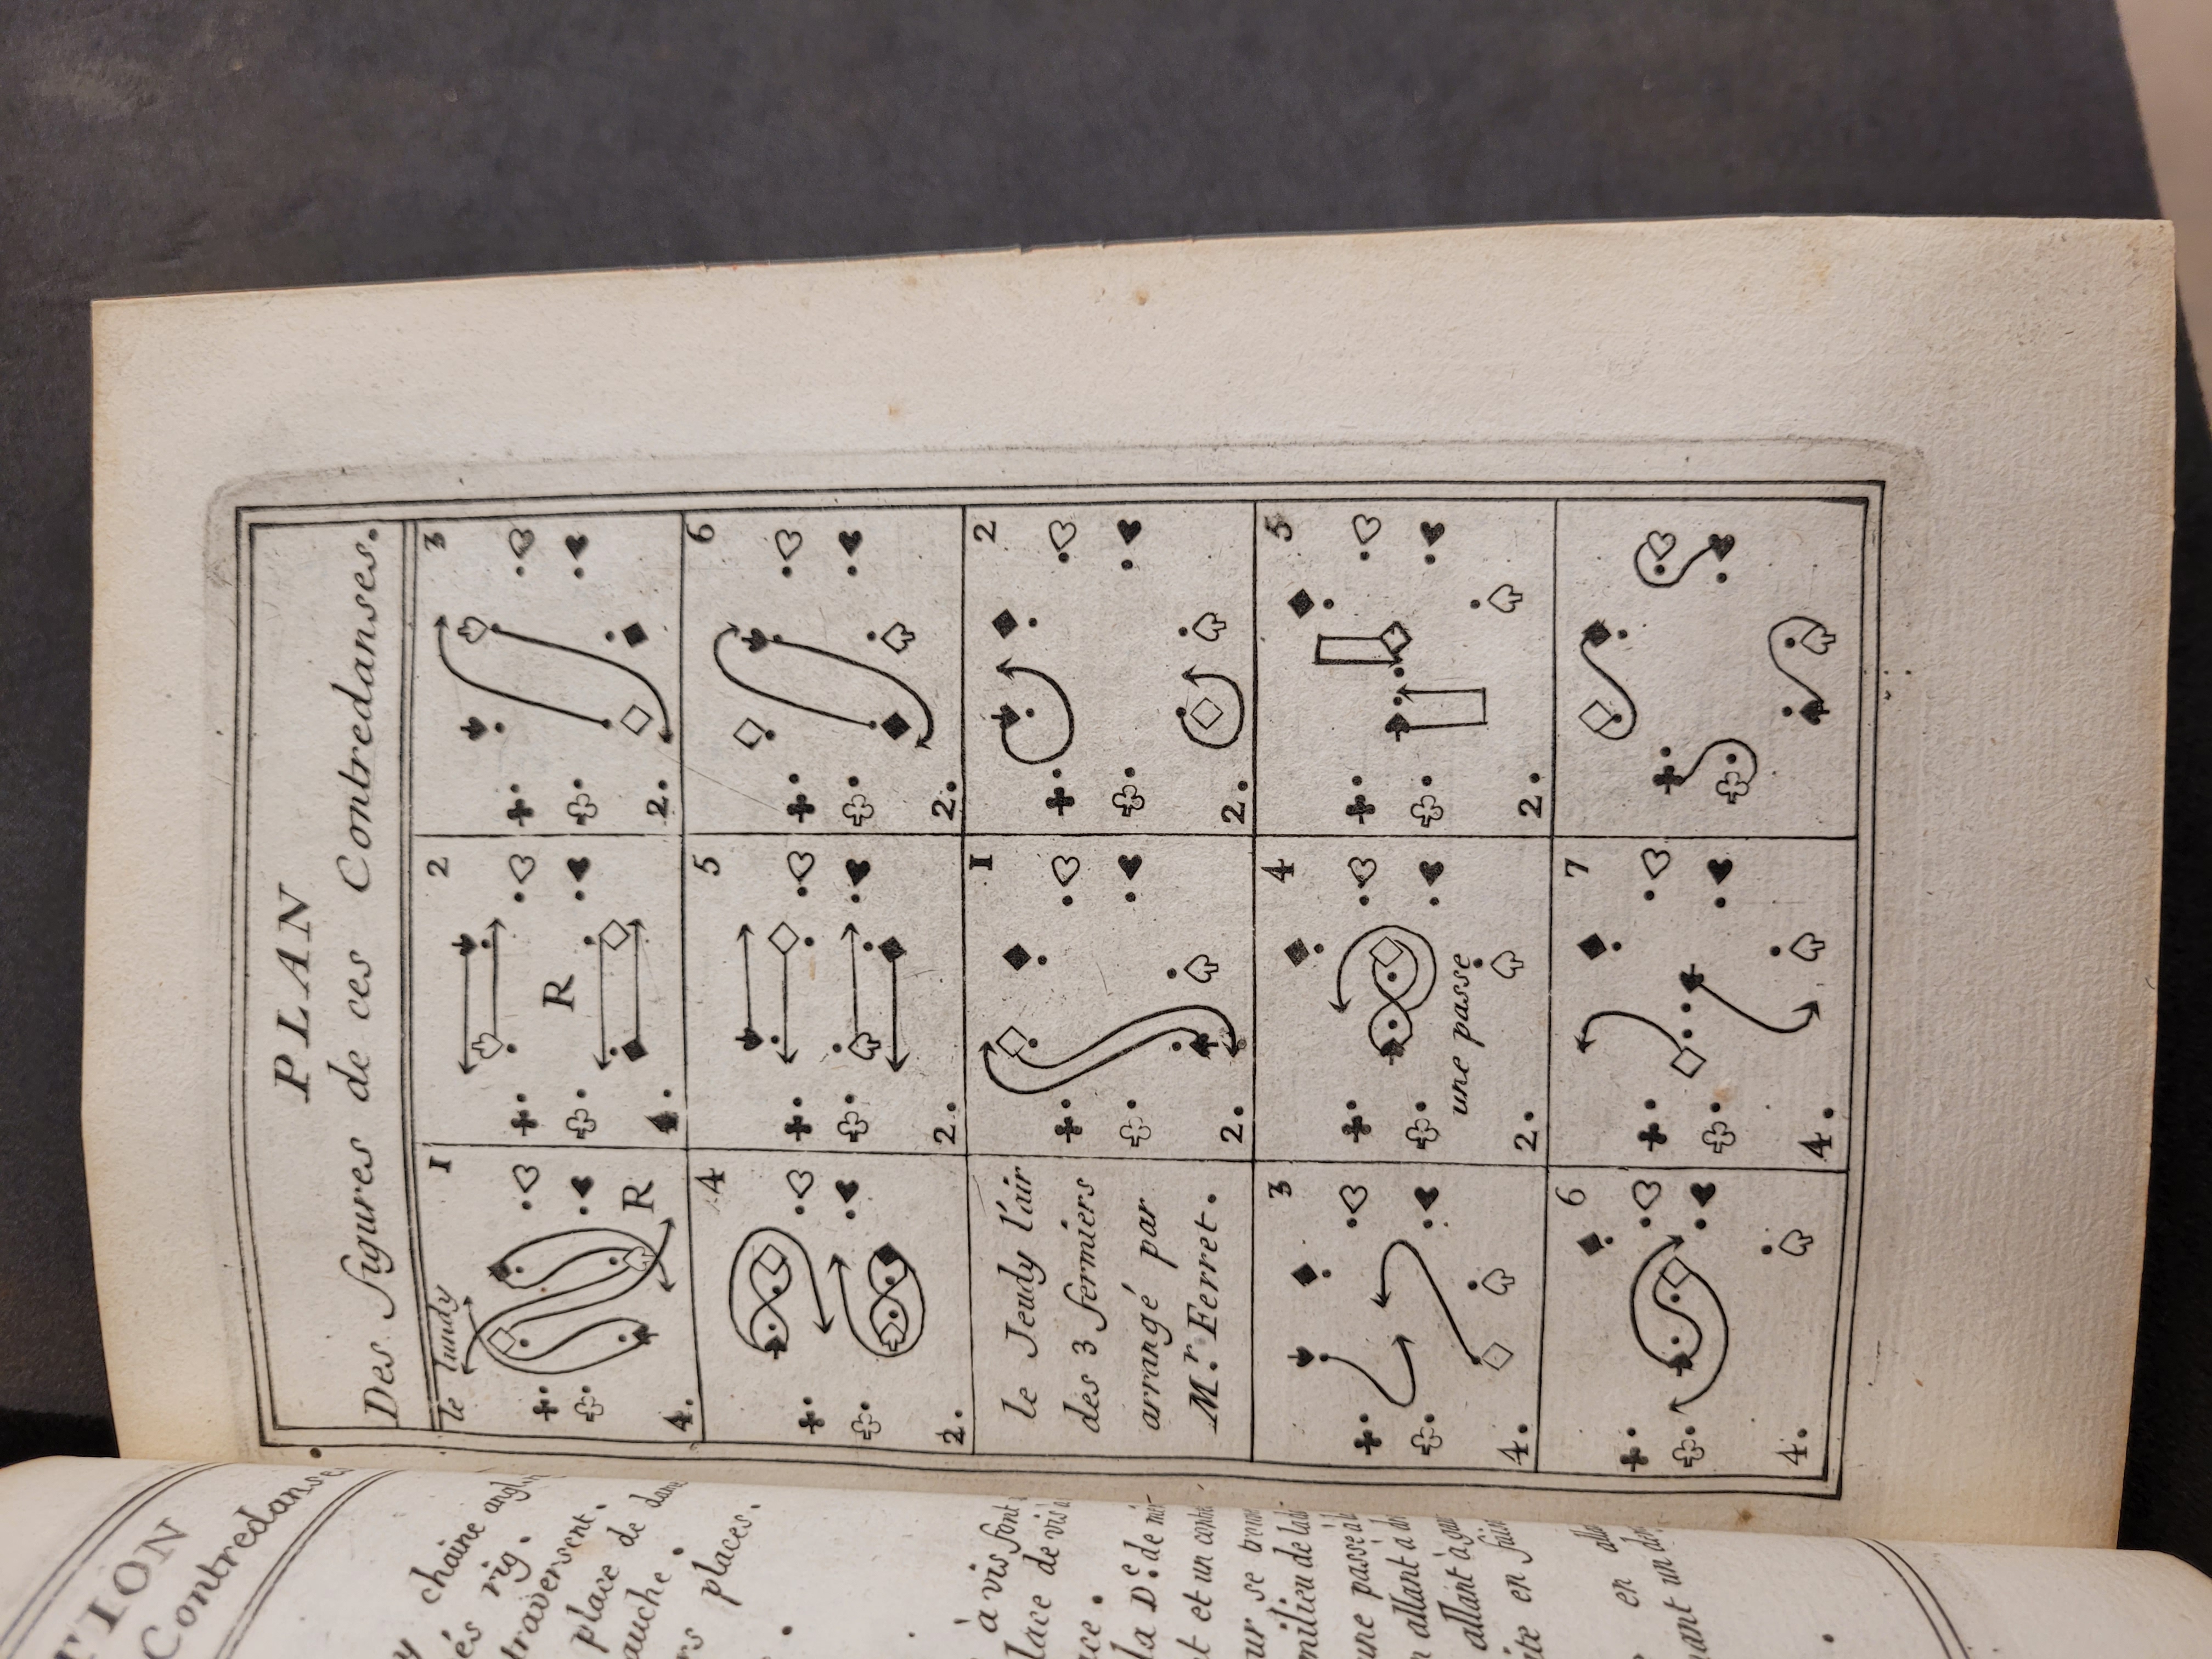 PLAN
Des figures de ces Contredanses.
le lundy
1
R
4.
2
R
4.
3
2.
4
2.
5
2.
6
2.
le Jeudy l'air
des 3 fermiers
arrangé par
M.r Ferret.
1
2.
2
2.
3
4.
4
une passe
2.
5
2.
6
4.
7
4.
TION
Contredanses
y chaine
és rig.
traversent.
place de
auche.
rs places.
à vis font
lace de vis
ace.
la D.e de
t et un
ur se
milieu de
une passe
n allant à
allant à
ite en
en
uant un